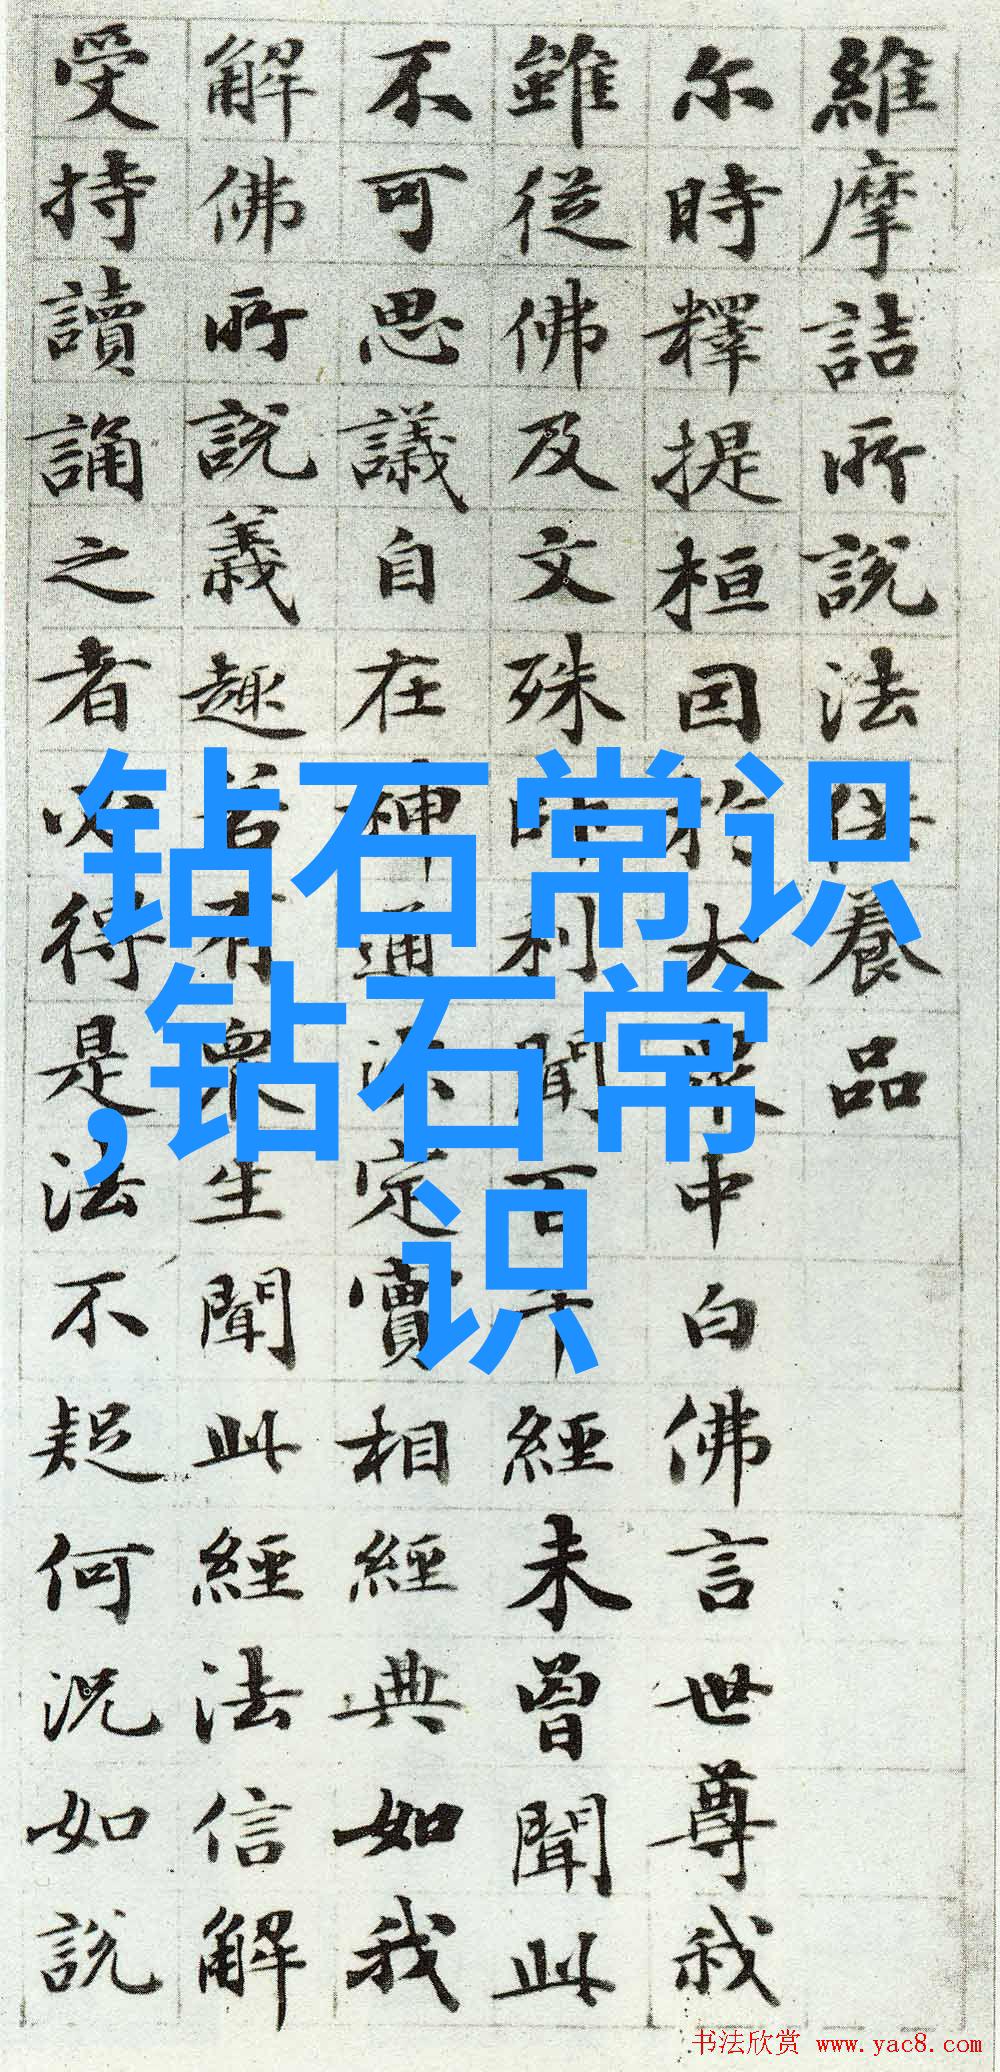 維摩詰所說法供養品
尔時釋提桓因於大眾中白佛言世尊我
雖從佛及文殊師利聞百千經未曾聞此
不可思議自在神通決定實相經典如我
解佛所說義趣若有眾生聞此經法信解
受持讀誦之者必得是法不疑何況如說
钻石常识
,钻石常
识
书法欣赏 www.yac8.com